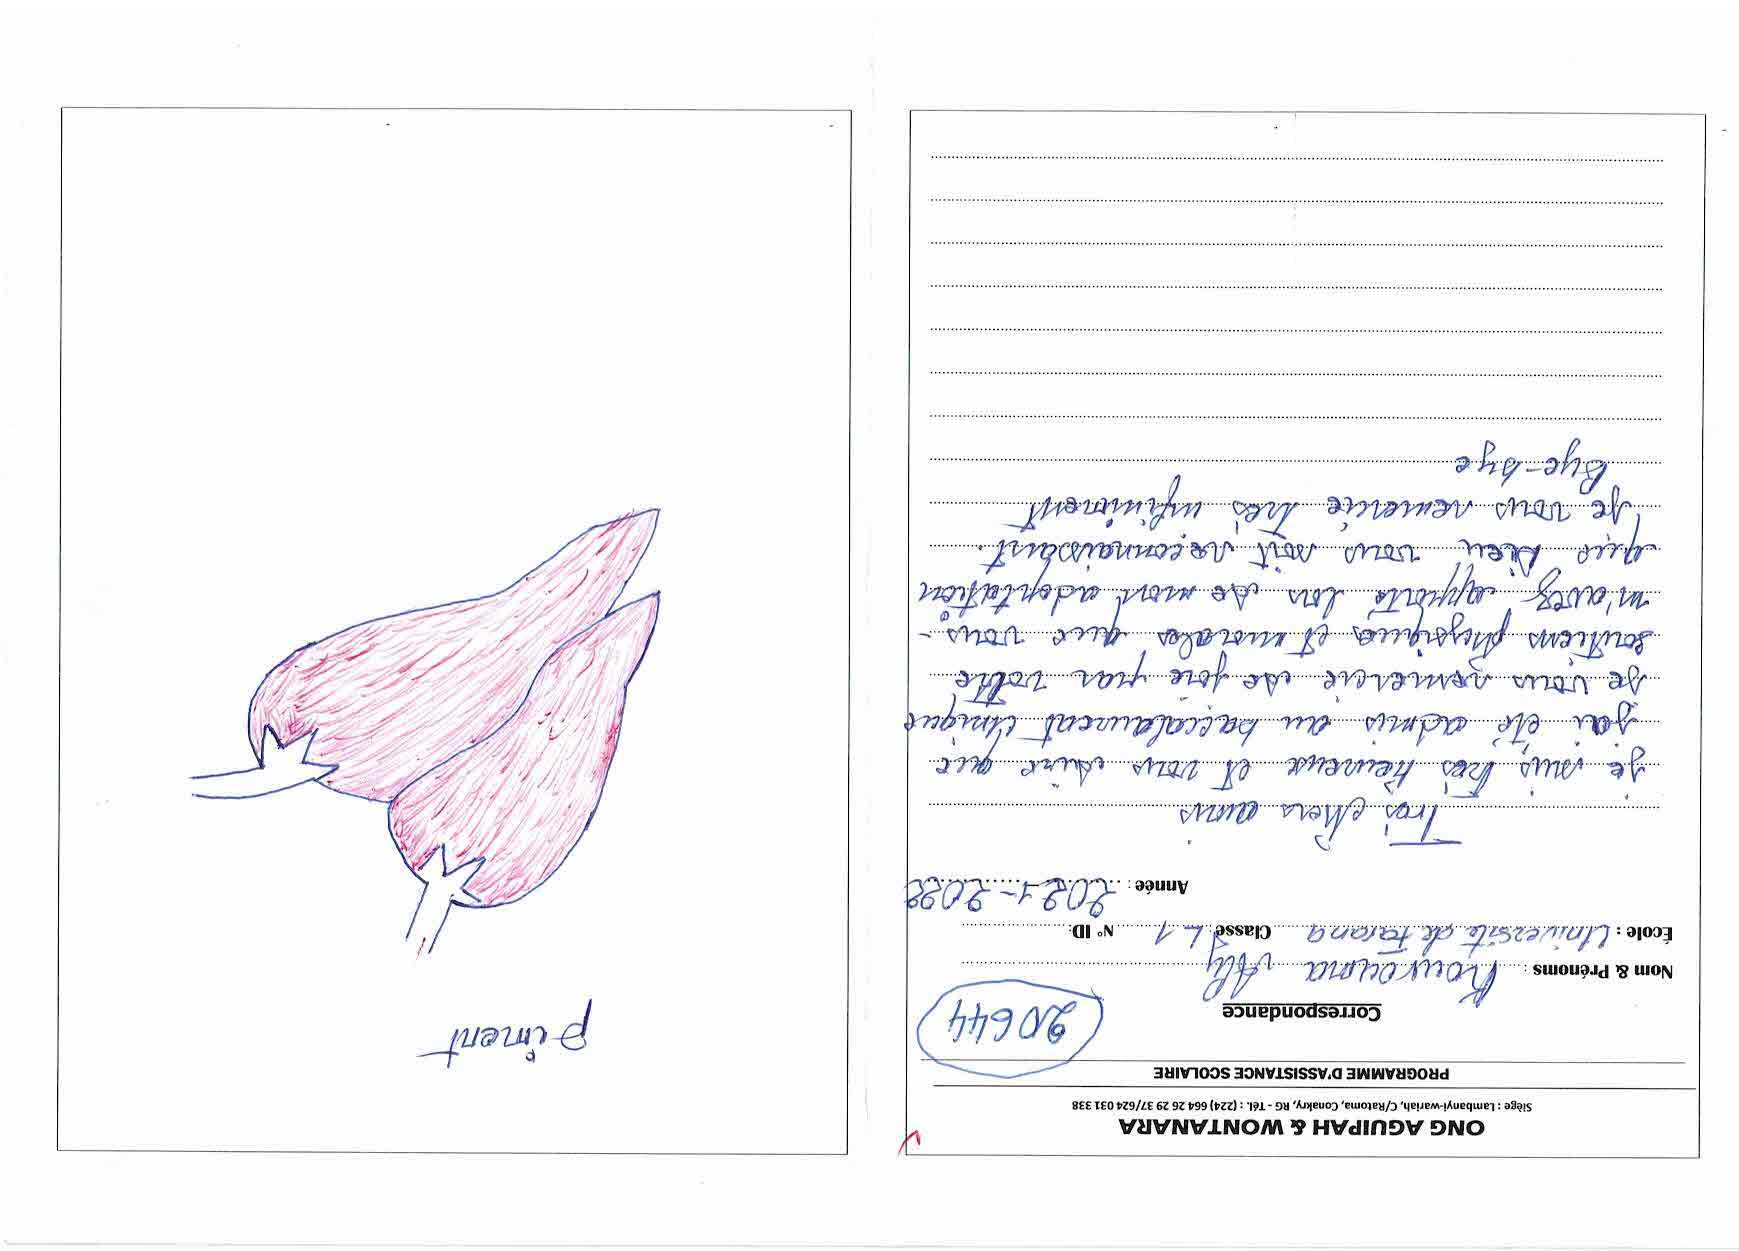 ONG AGUIPAH & WONTANARA
Siège : Lambanyi-wariah, C/Ratoma, Conakry, RG - Tél. : (224) 664 26 29 37/624 031 338
PROGRAMME D'ASSISTANCE SCOLAIRE
20644
Correspondance
Nom & Prénoms : Kourouma Aly
École : Université de Farana Classe L1 N° ID:
Année : 2021-2022
Très chers amis
je suis très heureux et vous dire que
j'ai été admis au baccalaureat Unique
Je vous remercie de joie par votre
soutiens physiques et morales que vous-
m'avez apporté lors de mon adontation
que Dieu vous soit reconnaissant.
Je vous remercie très infiniment
Bye-bye
piment